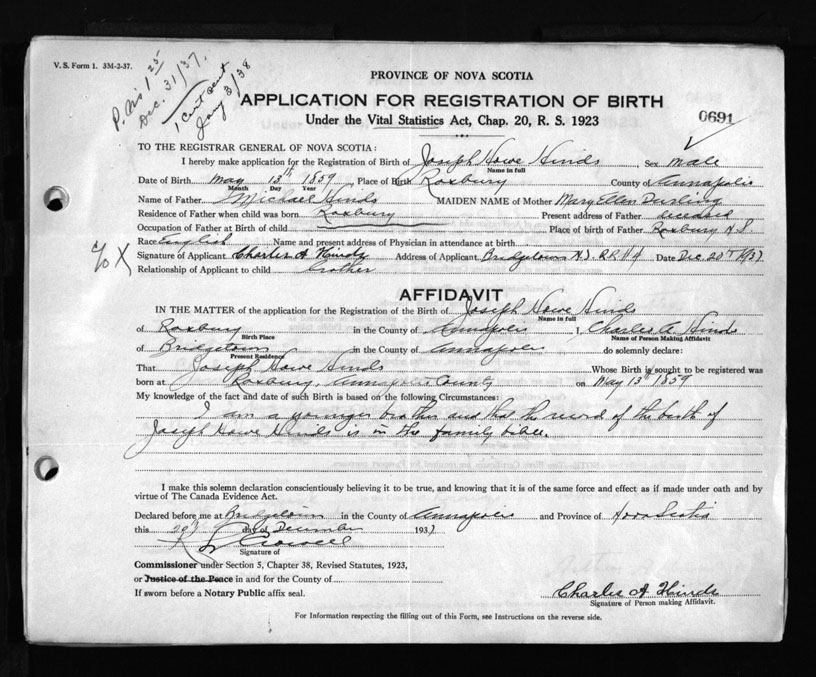 V. S. Form 1. 3M-2-37.
P. No 1 25
Dec. 31/37.
1 Cert sent
Jany 3/38
PROVINCE OF NOVA SCOTIA
APPLICATION FOR REGISTRATION OF BIRTH
0691
Under the Vital Statistics Act, Chap. 20, R. S. 1923
TO THE REGISTRAR GENERAL OF NOVA SCOTIA:
I hereby make application for the Registration of Birth of Joseph Howe Hinds Sex Male
Name in full
Date of Birth May 13th 1859 Place of Birth Roxbury County of Annapolis
Month Day Year
Name of Father Michael Hinds MAIDEN NAME of Mother Mary Ellen Durling
Residence of Father when child was born Roxbury Present address of Father deceased
Occupation of Father at Birth of child Place of birth of Father Roxbury N.S.
Race English Name and present address of Physician in attendance at birth
Signature of Applicant Charles A Hinds Address of Applicant Bridgetown N.S. RR #4 Date Dec. 20th 1937
Relationship of Applicant to child brother
AFFIDAVIT
IN THE MATTER of the application for the Registration of the Birth of Joseph Howe Hinds
Name in full
of Roxbury in the County of Annapolis I, Charles A. Hinds
Birth Place Name of Person Making Affidavit
of Bridgetown in the County of Annapolis do solemnly declare:
Present Residence
That Joseph Howe Hinds Whose Birth is sought to be registered was
born at Roxbury, Annapolis County on May 13th 1859
My knowledge of the fact and date of such Birth is based on the following Circumstances:
I am a younger brother and that the record of the birth of
Joseph Howe Hinds is in the family bible.
I make this solemn declaration conscientiously believing it to be true, and knowing that it is of the same force and effect as if made under oath and by
virtue of The Canada Evidence Act.
Declared before me at Bridgetown in the County of Annapolis and Province of Nova Scotia
this day of December 1937
Signature of
Commissioner under Section 5, Chapter 38, Revised Statutes, 1923,
or Justice of the Peace in and for the County of
If sworn before a Notary Public affix seal.
Charles A Hinds
Signature of Person making Affidavit.
For Information respecting the filling out of this Form, see Instructions on the reverse side.